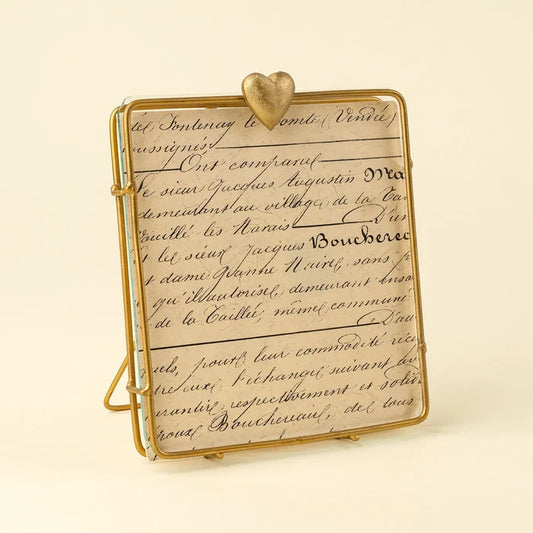 de Fontenay le Comte (Vendée)
soussignés
Ont comparu
le sieur Jacques Augustin Ma
demeurant au village de la Tai
Vouillé les Marais D'un
et le sieur Jacques Bouchereau
et dame Jeanne Naire, sans p
qu'il autorise, demeurant ense
de la Taillée, même commune
D'au
quels, pour leur commodité réci
entre eux, l'échange suivant av
garantire, respectivement et solid
époux Bouchereau, de tous